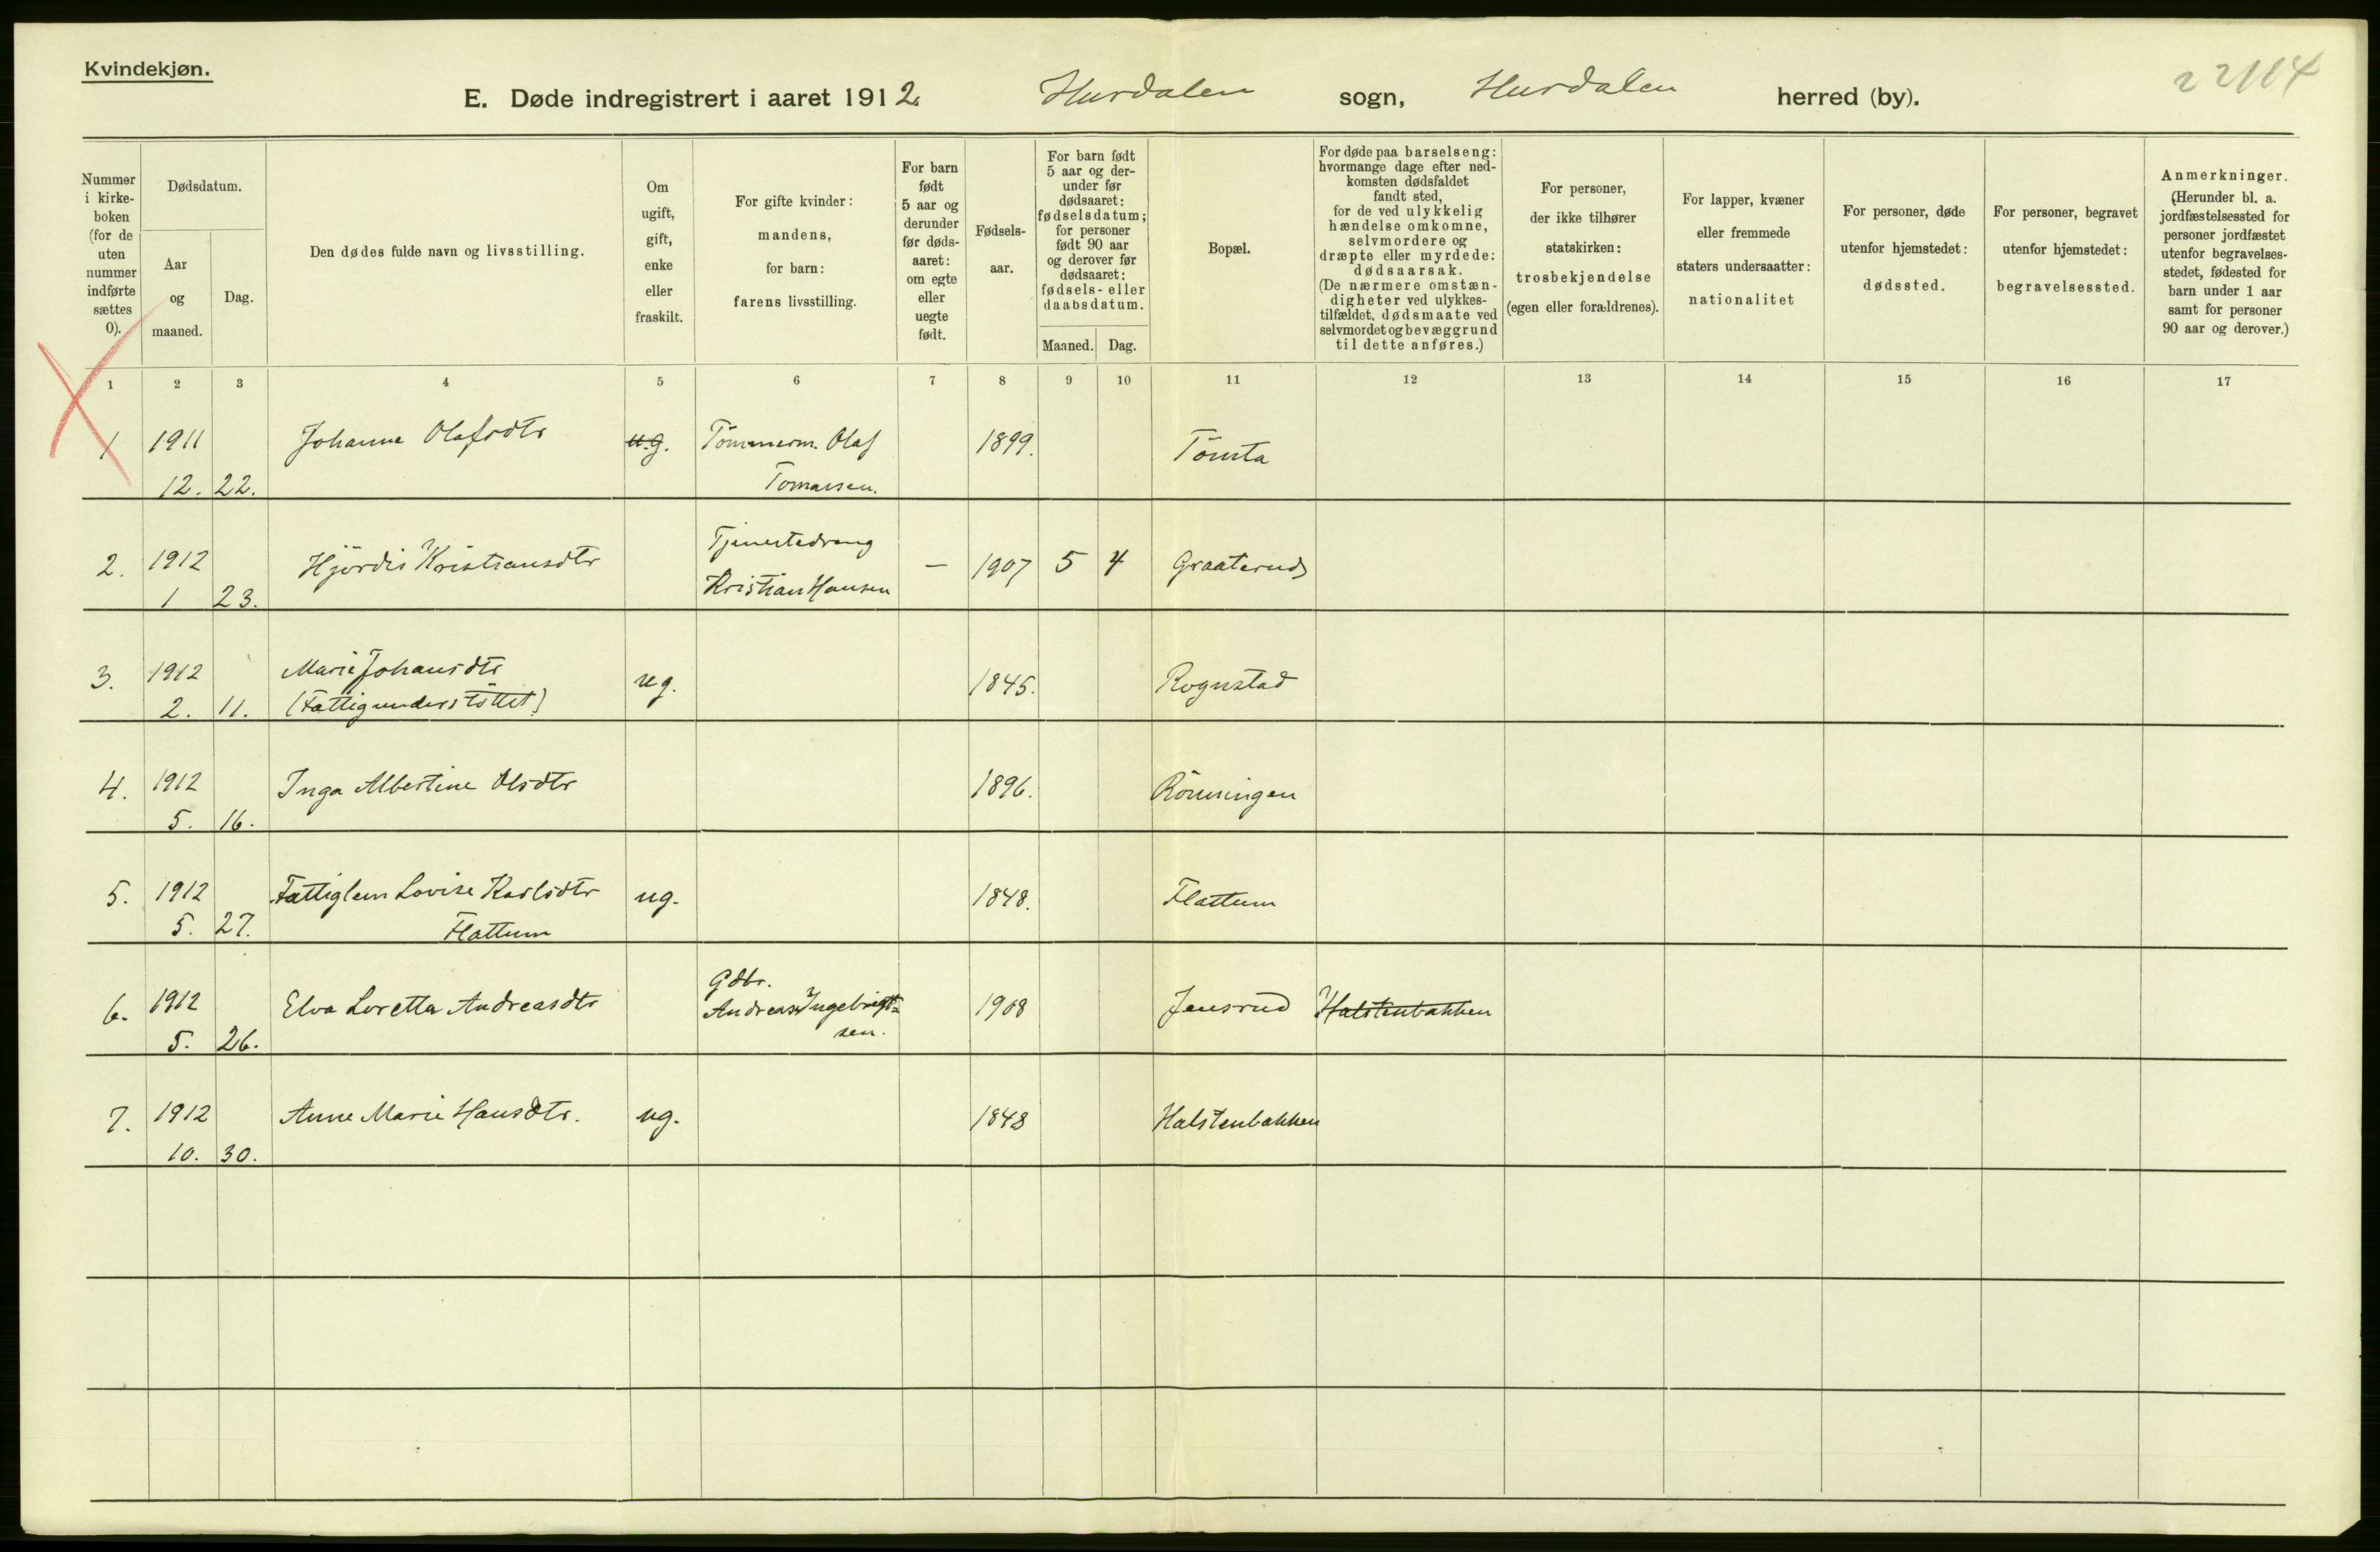 Kvindekjøn.
22114
E. Døde indregistrert i aaret 1912. Hurdalen sogn, Hurdalen herred (by).
Nummer
i kirke-
boken
(for de
uten
nummer
indførte
sættes
0).
Dødsdatum.
Aar
og
maaned.
Dag.
Den dødes fulde navn og livsstilling.
Om
ugift,
gift,
enke
eller
fraskilt.
For gifte kvinder:
mandens,
for barn:
farens livsstilling.
For barn
født
5 aar og
derunder
før døds-
aaret:
om egte
eller
uegte
født.
Fødsels-
aar.
For barn født
5 aar og der-
under før
dødsaaret:
fødselsdatum;
for personer
født 90 aar
og derover før
dødsaaret:
fødsels- eller
daabsdatum.
Maaned. Dag.
Bopæl.
For døde paa barselseng:
hvormange dage efter ned-
komsten dødsfaldet
fandt sted,
for de ved ulykkelig
hændelse omkomne,
selvmordere og
dræpte eller myrdede:
dødsaarsak.
(De nærmere omstæn-
digheter ved ulykkes-
tilfældet, dødsmaate ved
selvmordet og bevæggrund
til dette anføres.)
For personer,
der ikke tilhører
statskirken:
trosbekjendelse
(egen eller forældrenes).
For lapper, kvæner
eller fremmede
staters undersaatter:
nationalitet
For personer, døde
utenfor hjemstedet:
dødssted.
For personer, begravet
utenfor hjemstedet:
begravelsessted.
Anmerkninger.
(Herunder bl. a.
jordfæstelsessted for
personer jordfæstet
utenfor begravelses-
stedet, fødested for
barn under 1 aar
samt for personer
90 aar og derover.)
1 2 3 4 5 6 7 8 9 10 11 12 13 14 15 16 17
1 1911 Johanne Olafsdtr u.g. Tömmerm. Olaf 1899. Tömta
12. 22. Tomassen.
Tjenestedreng
2. 1912 Hjördis Kristiansdtr — 1907 5 4 Graaterud
1 23. Kristian Hansen
3. 1912 Marie Johansdtr ug. 1845. Rognstad
2. 11. (Fattigunderstöttet)
4. 1912 Inga Albertine Olsdtr 1896. Rönningen
5. 16.
5. 1912 Fattiglem Lovise Karlsdtr ug. 1848. Flattum
5. 27. Flattum
Gdbr.
6. 1912 Elva Loretta Andreasdtr Andreas Ingebrigt= 1908 Jensrud Halstenbakken
5. 26. sen.
7. 1912 Anne Marie Hansdtr. ug. 1848 Halstenbakken
10. 30.